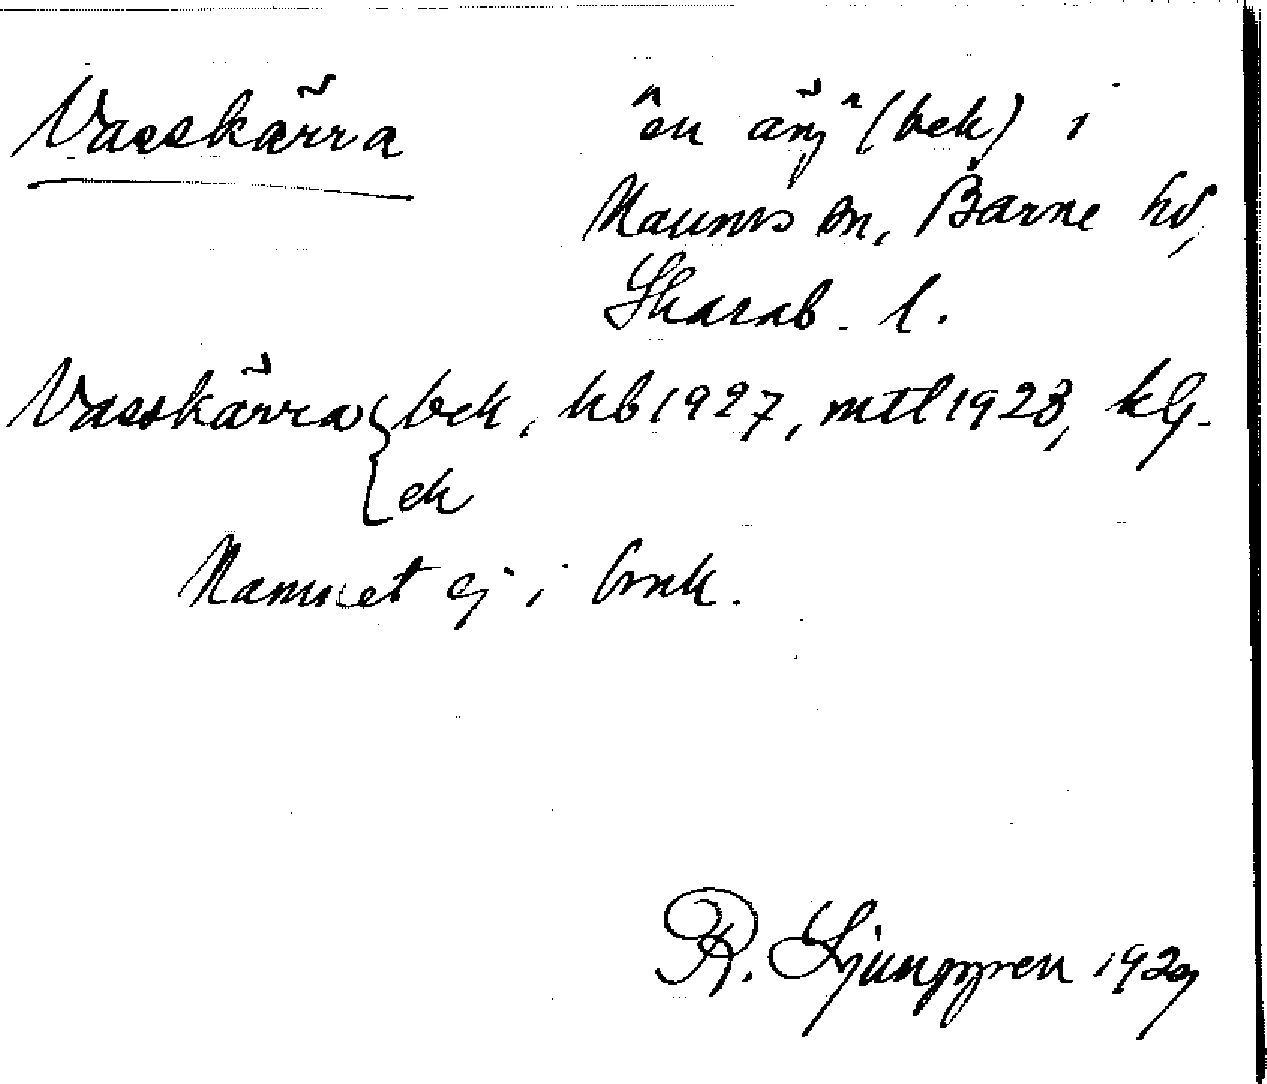 Vasskärra "en äng" (bek) i
Naums sn, Barne hd,
Skarab. l.
Vasskärra { bek, kb 1927, mtl 1928, kG.
ek
Namnet ej i bruk.
R. Ljunggren 1929